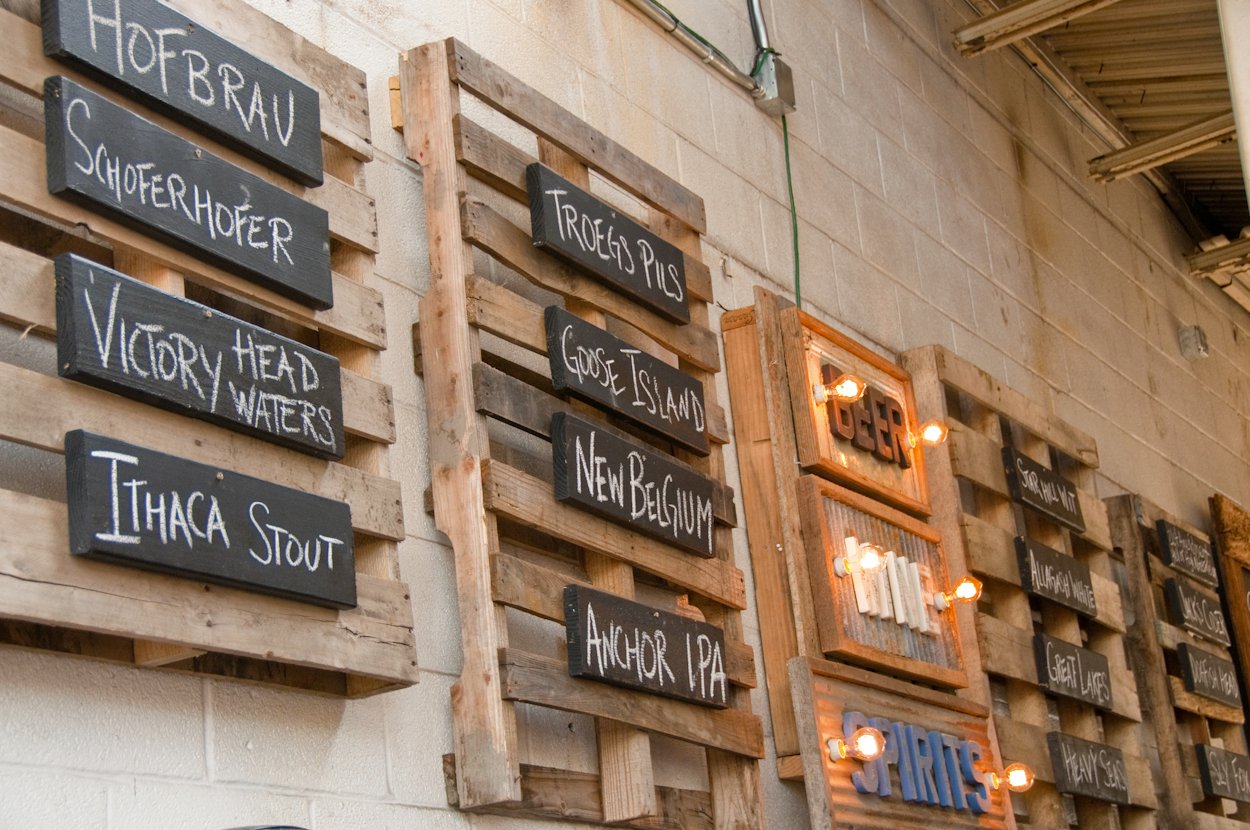 HOFBRAU
SCHOFERHOFER
VICTORY HEAD
WATERS
ITHACA STOUT
TROEGS PILS
GOOSE ISLAND
NEW BELGIUM
ANCHOR IPA
BEER
WINE
SPIRITS
STAR HILL
ALLAGASH WHITE
GREAT LAKES
HEAVY SEAS
JACK'S CIDER
DOGFISH HEAD
SLY FOX